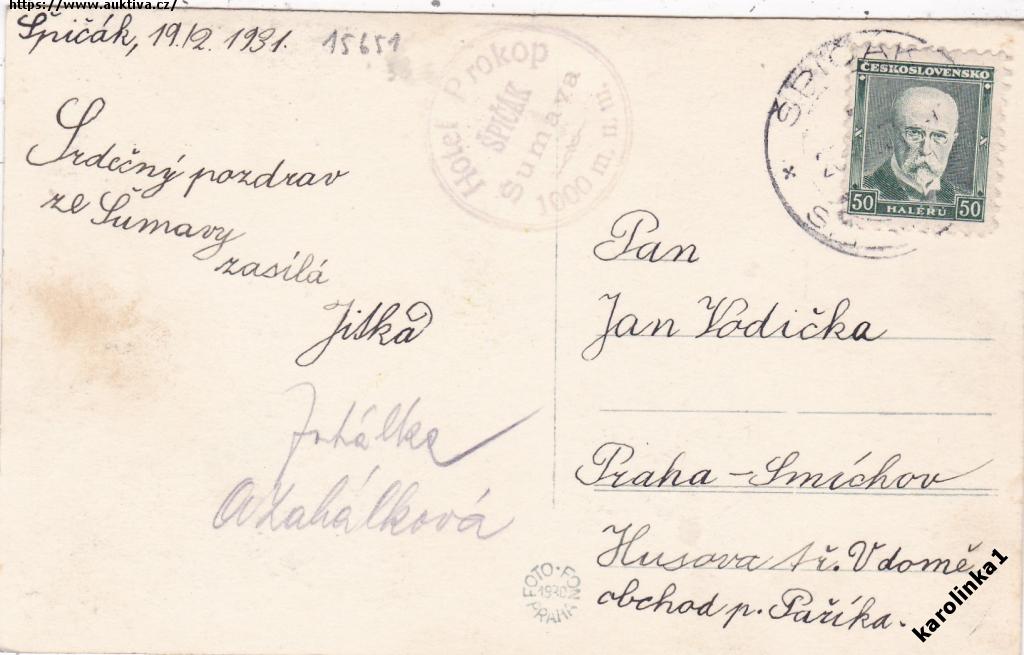 https://www.auktiva.cz/
Špičák, 19./2. 1931.
15651
Hotel Prokop
ŠPIČÁK
Šumava
1000 m. n. m.
ČESKOSLOVENSKO
50 HALÉŘŮ 50
Srdečný pozdrav
ze Šumavy
zasílá
Jitka
Zahálková
Pan
Jan Vodička
Praha-Smíchov
Husova tř. V domě
obchod p. Paříka.
FOTO-FON
1930
PRAHA
karolinka1